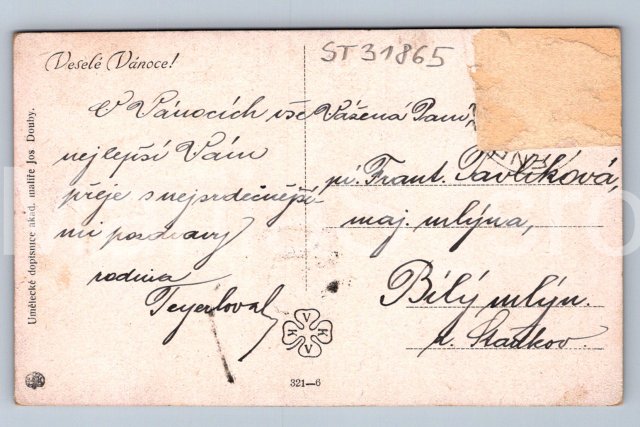 Veselé Vánoce!
ST31865
O Vánocích vše
nejlepší Vám
přeje s nejsrdečnější-
mi pozdravy
rodina
Vážená Paní
pí. Frant. Pavlíková,
maj. mlýna,
Bílý mlýn.
Umělecké dopisnice akad. malíře Jos. Douby.
V
K K
V
321—6